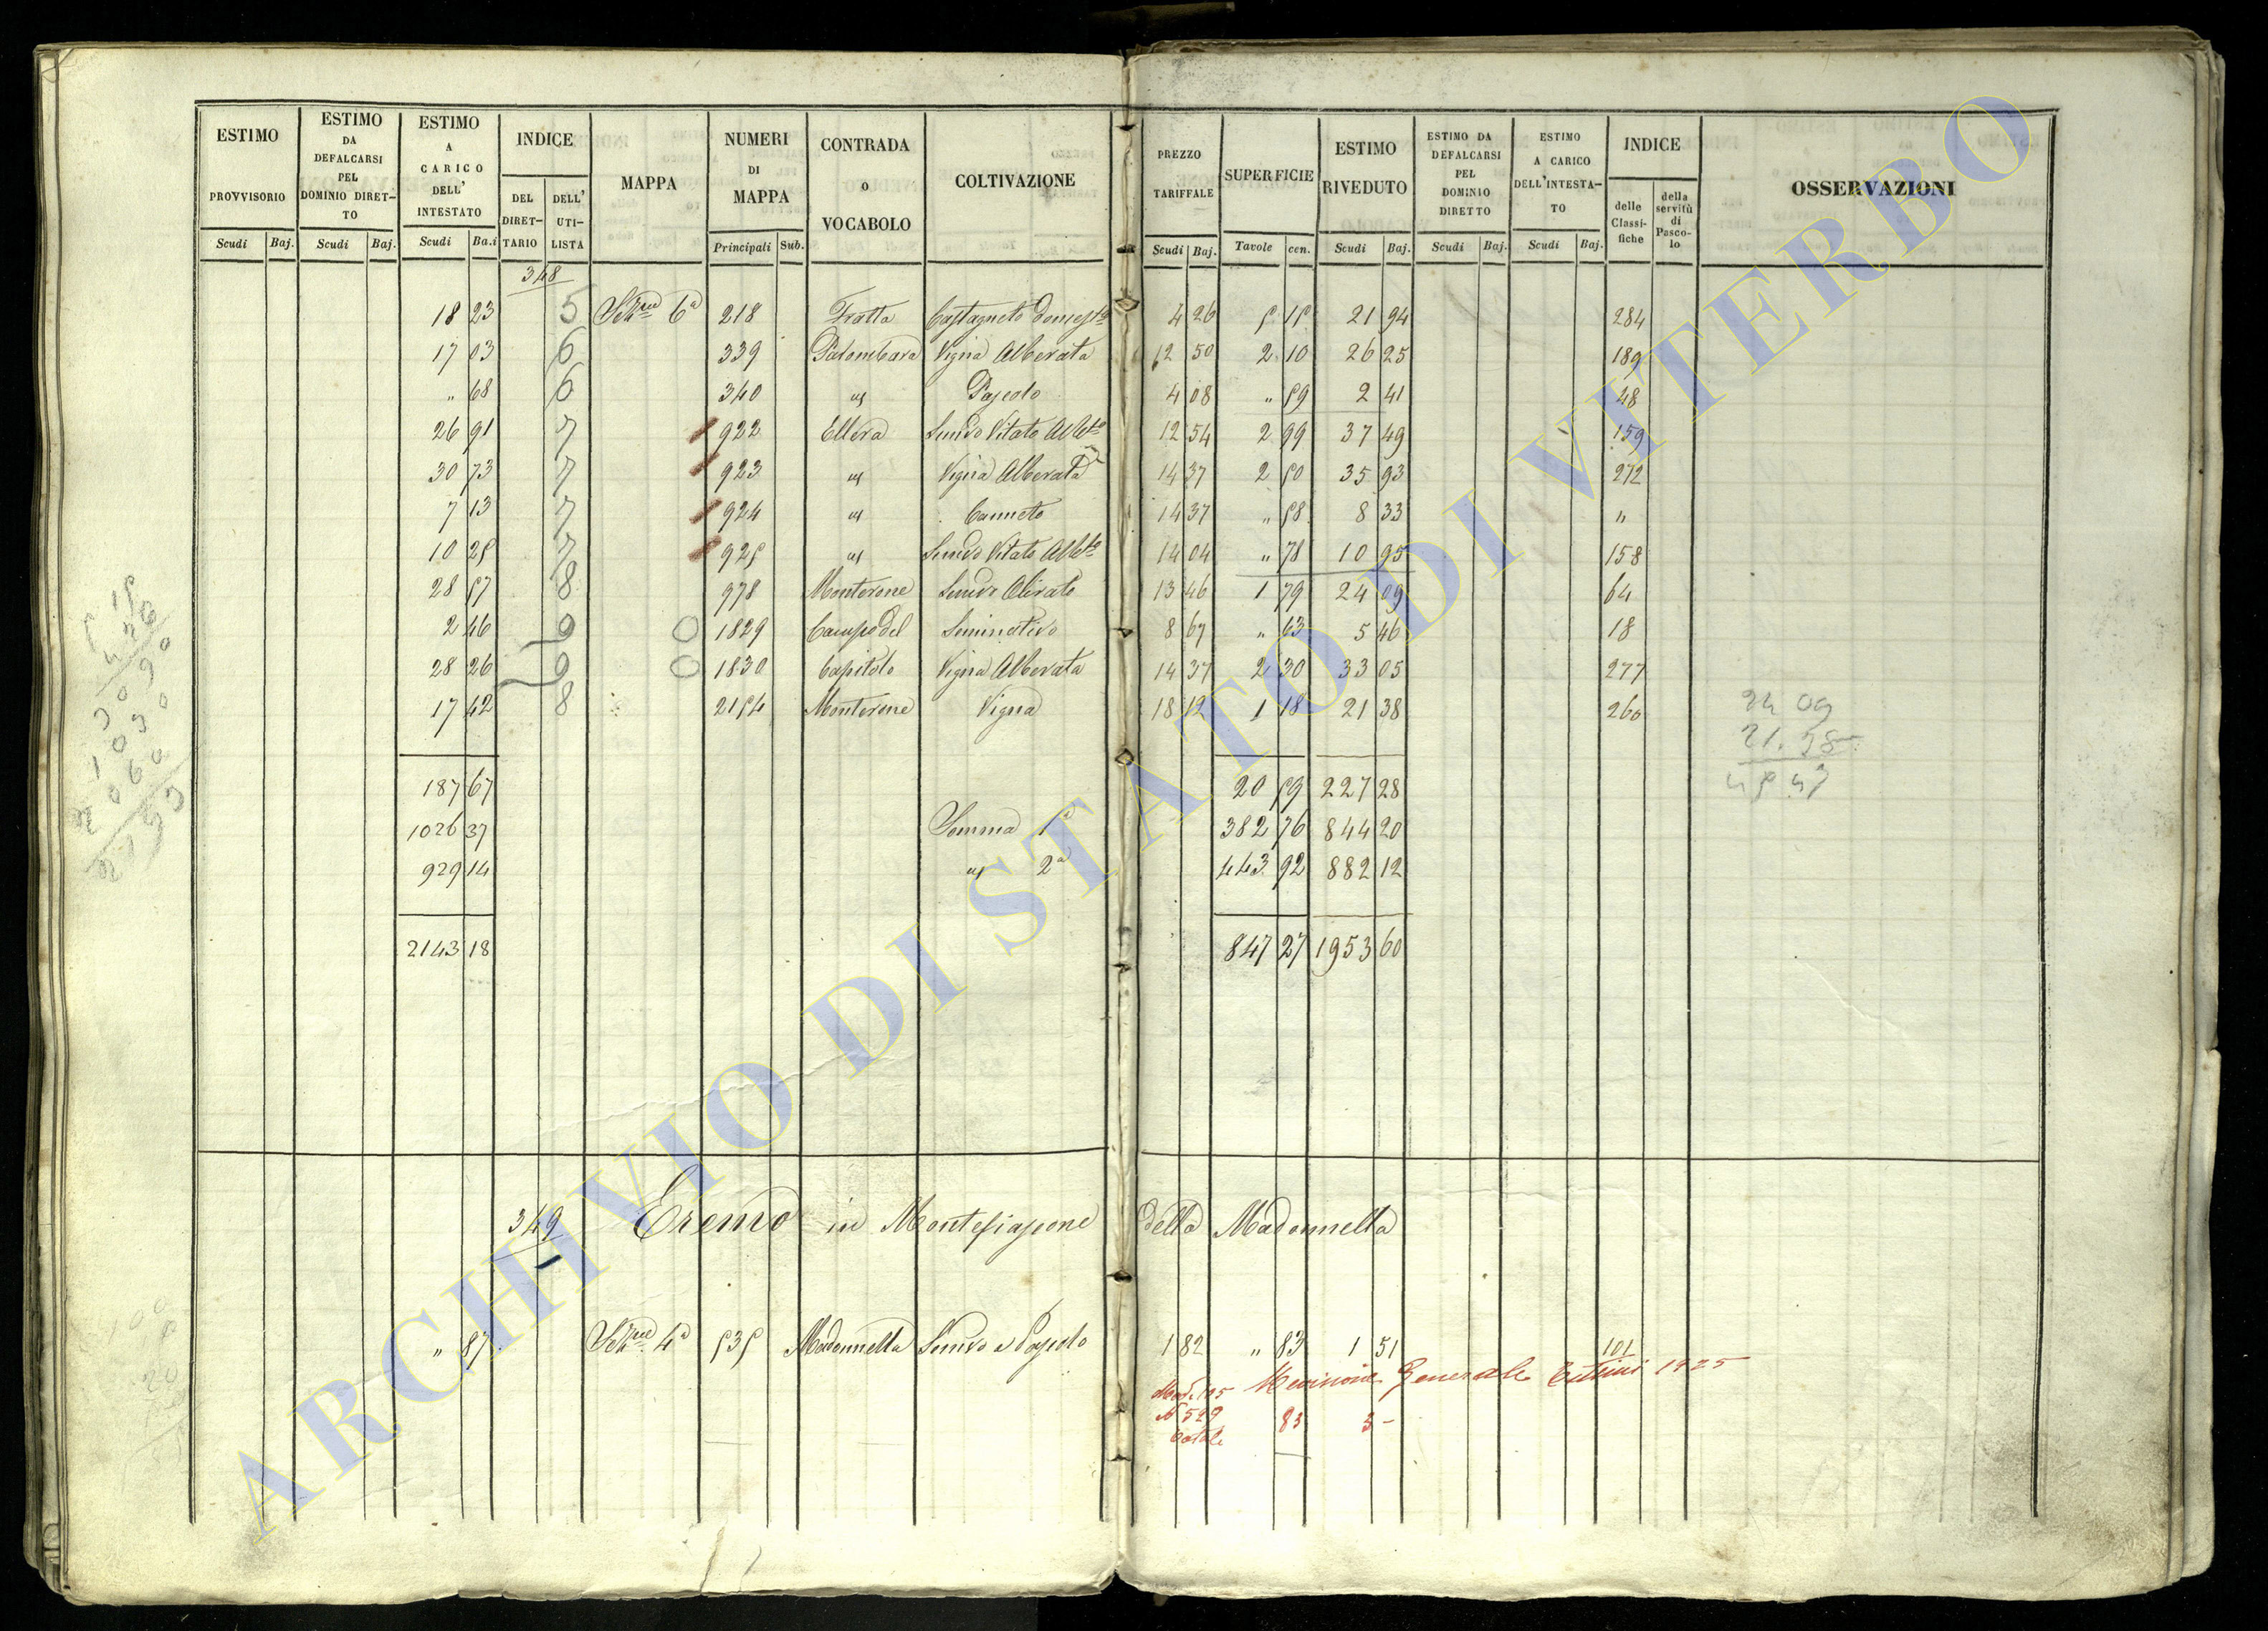 ESTIMO PROVVISORIO Scudi Baj. ESTIMO DA DEFALCARSI PEL DOMINIO DIRETTO Scudi Baj. ESTIMO A CARICO DELL' INTESTATO Scudi Ba.i INDICE DEL DIRETTARIO DELL' UTILISTA MAPPA NUMERI DI MAPPA Principali Sub. CONTRADA O VOCABOLO COLTIVAZIONE PREZZO TARIFFALE Scudi Baj. SUPERFICIE Tavole cen. ESTIMO RIVEDUTO Scudi Baj. ESTIMO DA DEFALCARSI PEL DOMINIO DIRETTO Scudi Baj. ESTIMO A CARICO DELL'INTESTATO Scudi Baj. INDICE delle Classifiche della servitù di Pascolo OSSERVAZIONI
348
18 23 5 Sez.ne 6a 218 Fratta Castagneto domest.o 4 26 5 15 21 94 284
17 03 6 339 Palombara Vigna Alberata 12 50 2 10 26 25 189
" 68 6 340 " Pascolo 4 08 " 59 2 41 48
26 91 7 922 Ellera Semvo Vitato Alb.to 12 54 2 99 37 49 159
30 73 7 923 " Vigna Alberata 14 37 2 50 35 93 272
7 13 7 924 " Canneto 14 37 " 58 8 33 "
10 25 7 925 " Semvo Vitato Alb.to 14 04 " 78 10 95 158
28 57 8 978 Monterone Semvo Olivato 13 46 1 79 24 09 64
2 46 9 1829 Campo del Seminativo 8 67 " 63 5 46 18
28 26 9 1830 Capitolo Vigna Alberata 14 37 2 30 33 05 277
17 42 8 2154 Monterone Vigna 18 12 1 18 21 38 260
24 09
187 67 20 59 227 28
1026 37 Somma 1a 382 76 844 20
929 14 " 2a 443 92 882 12
2143 18 847 27 1953 60
349 Eremo in Montefiascone della Madonnella
" 87 Sez.ne 4a 535 Madonnella Semvo e Pascolo 1 82 " 83 1 51 101
Revisione Generale Estimi 1925
N 529 83 3 -
ARCHIVIO DI STATO DI VITERBO